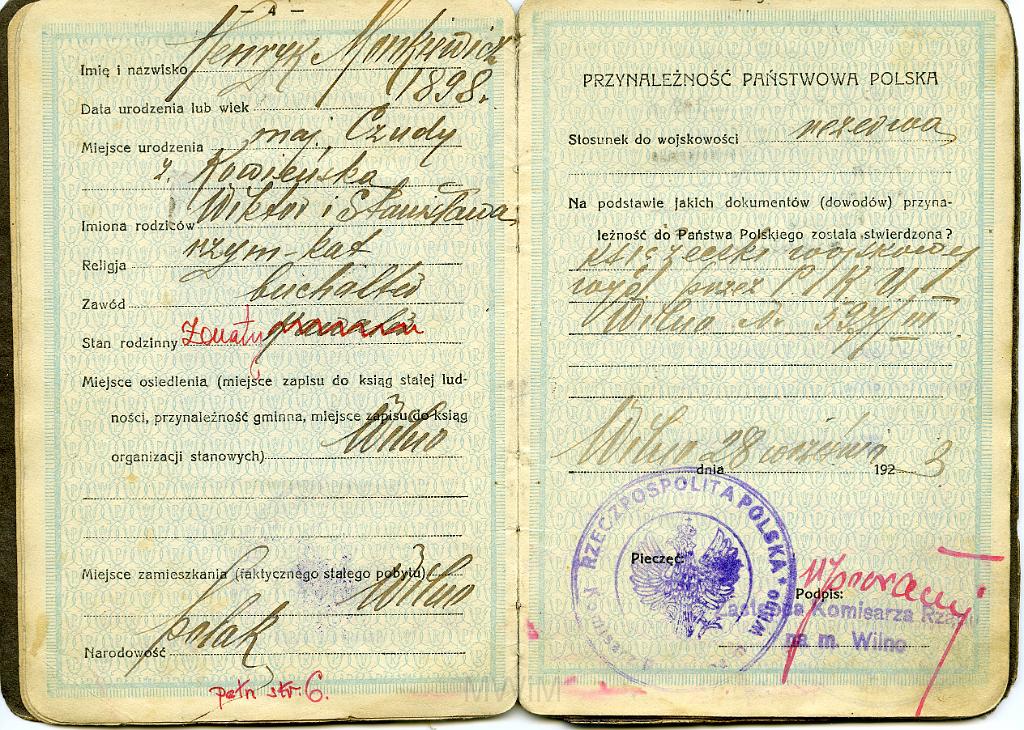 — 4 —
Imię i nazwisko Henryk Monkiewicz
Data urodzenia lub wiek 1898.
Miejsce urodzenia maj. Czudy
z. Kowieńska
Imiona rodziców Wiktor i Stanisława
Religja rzym-kat
Zawód buchalter
Stan rodzinny żonaty
Miejsce osiedlenia (miejsce zapisu do ksiąg stałej lud-
ności, przynależność gminna, miejsce zapisu do ksiąg
organizacji stanowych) Wilno
Miejsce zamieszkania (faktycznego stałego pobytu) Wilno
Narodowość polak
patrz str. 6.
PRZYNALEŻNOŚĆ PAŃSTWOWA POLSKA
Stosunek do wojskowości rezerwa
Na podstawie jakich dokumentów (dowodów) przyna-
leżność do Państwa Polskiego została stwierdzona?
książeczki wojskowej
wyd. przez P.K.U.
Wilno Nr
Wilno dnia 28 września 1923
RZECZPOSPOLITA POLSKA
Komisarz Rządu
Wilno
Pieczęć:
Podpis:
Zastępca Komisarza Rządu
na m. Wilno
MWIM